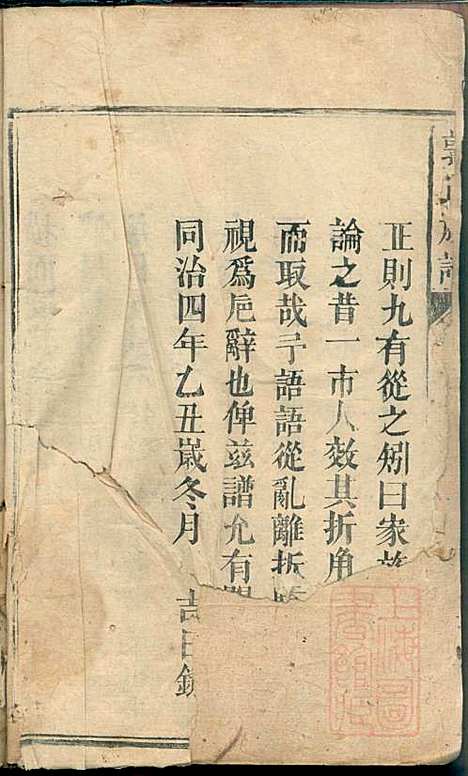 正則九有從之矧曰家族
論之昔一市人效其折角
而取哉予語語從亂離拆
視爲卮辭也俾兹譜允有
同治四年乙丑歲冬月 吉日錄
上海圖書館藏